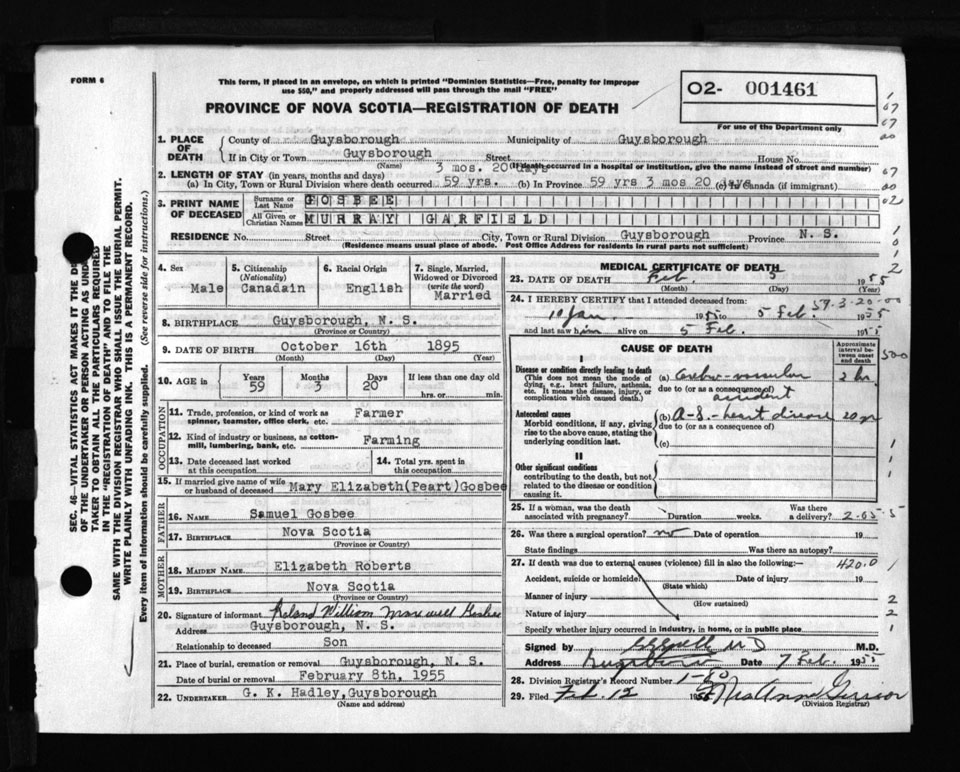 FORM 6
This form, if placed in an envelope, on which is printed "Dominion Statistics—Free, penalty for improper
use $50," and properly addressed will pass through the mail "FREE"
O2- 001461
For use of the Department only
PROVINCE OF NOVA SCOTIA—REGISTRATION OF DEATH
1. PLACE OF DEATH County of Guysborough Municipality of Guysborough
If in City or Town Guysborough Street House No.
(Name) (If death occurred in a hospital or institution, give the name instead of street and number)
3 mos. 20 days
2. LENGTH OF STAY (in years, months and days)
(a) In City, Town or Rural Division where death occurred 59 yrs. (b) In Province 59 yrs 3 mos 20 days (c) In Canada (if immigrant)
3. PRINT NAME OF DECEASED Surname or Last Name GOSBEE
All Given or Christian Names MURRAY GARFIELD
RESIDENCE No. Street City, Town or Rural Division Guysborough Province N. S.
(Residence means usual place of abode. Post Office Address for residents in rural parts not sufficient)
4. Sex Male
5. Citizenship (Nationality) Canadain
6. Racial Origin English
7. Single, Married, Widowed or Divorced (write the word) Married
8. BIRTHPLACE Guysborough, N. S.
(Province or Country)
9. DATE OF BIRTH October 16th 1895
(Month) (Day) (Year)
10. AGE in Years 59 Months 3 Days 20 If less than one day old hrs. or min.
OCCUPATION
11. Trade, profession, or kind of work as spinner, teamster, office clerk, etc. Farmer
12. Kind of industry or business, as cotton-mill, lumbering, bank, etc. Farming
13. Date deceased last worked at this occupation
14. Total yrs. spent in this occupation
15. If married give name of wife or husband of deceased Mary Elizabeth(Peart)Gosbee
FATHER
16. NAME Samuel Gosbee
17. BIRTHPLACE Nova Scotia
(Province or Country)
MOTHER
18. MAIDEN NAME Elizabeth Roberts
19. BIRTHPLACE Nova Scotia
(Province or Country)
20. Signature of informant Roland William Maxwell Gosbee
Address Guysborough, N. S.
Relationship to deceased Son
21. Place of burial, cremation or removal Guysborough, N. S.
Date of burial or removal February 8th, 1955
22. UNDERTAKER G. K. Hadley, Guysborough
(Name and address)
MEDICAL CERTIFICATE OF DEATH
23. DATE OF DEATH Feb. 5 1955
(Month) (Day) (Year)
59-3-20-00
24. I HEREBY CERTIFY that I attended deceased from:
19 Jan. 1955 to 5 Feb. 1955
and last saw him alive on 5 Feb. 1955
CAUSE OF DEATH
Approximate interval between onset and death
I
Disease or condition directly leading to death
(This does not mean the mode of dying, e.g., heart failure, asthenia, etc. It means the disease, injury, or complication which caused death.)
(a) Cerebro-vascular accident 2 hr.
due to (or as a consequence of)
Antecedent causes
Morbid conditions, if any, giving rise to the above cause, stating the underlying condition last.
(b) A-S.-heart disease 20 yr
due to (or as a consequence of)
(c)
II
Other significant conditions
contributing to the death, but not related to the disease or condition causing it.
25. If a woman, was the death associated with pregnancy? Duration weeks. Was there a delivery? 2-05-5
26. Was there a surgical operation? no Date of operation 19
State findings Was there an autopsy?
27. If death was due to external causes (violence) fill in also the following:— 420.0
Accident, suicide or homicide? Date of injury 19
(State which)
Manner of injury
(How sustained)
Nature of injury
Specify whether injury occurred in industry, in home, or in public place
Signed by M.D.
Address Date 7 Feb. 1955
28. Division Registrar's Record Number 1-60
29. Filed Feb. 12 1955 Mrs Anne
(Division Registrar)
SEC. 46—VITAL STATISTICS ACT MAKES IT THE
OF THE UNDERTAKER OR PERSON ACTING AS UND
TAKER TO OBTAIN ALL THE PARTICULARS REQUIRED
IN THE "REGISTRATION OF DEATH" AND TO FILE THE
SAME WITH THE DIVISION REGISTRAR WHO SHALL ISSUE THE BURIAL PERMIT.
WRITE PLAINLY WITH UNFADING INK. THIS IS A PERMANENT RECORD.
Every item of information should be carefully supplied. (See reverse side for instructions.)